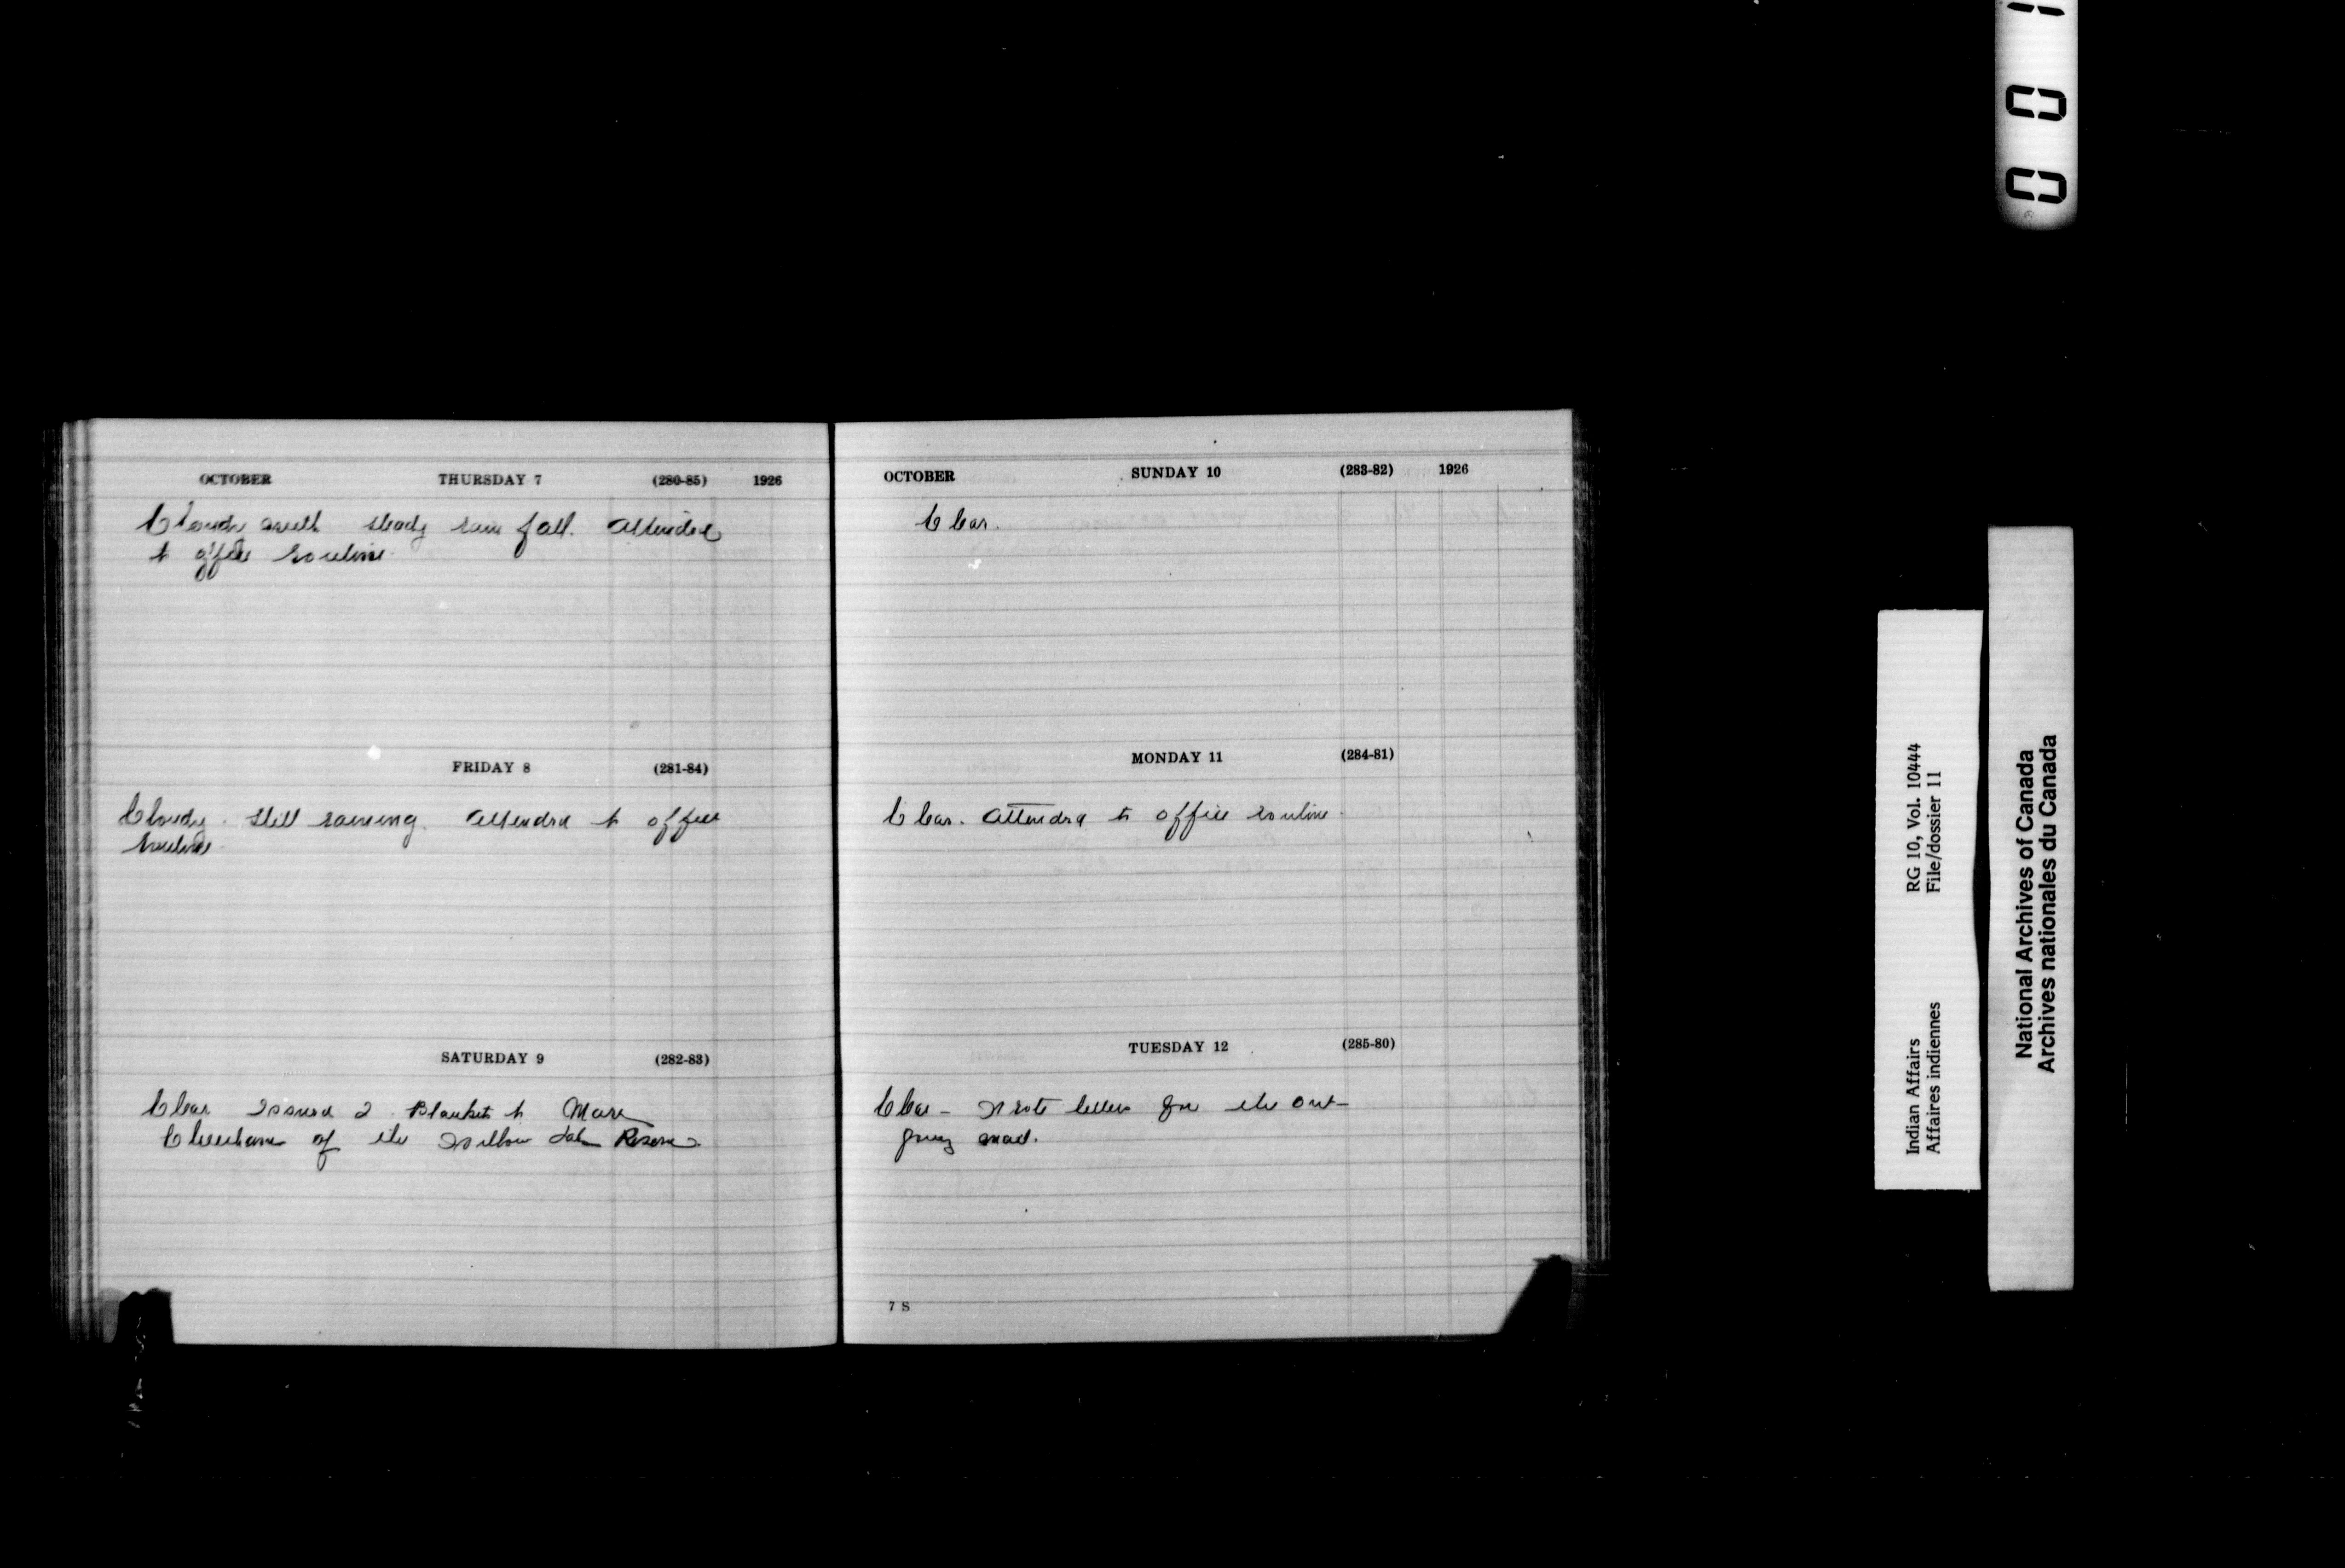 OCTOBER THURSDAY 7 (280-85) 1926
Cloudy with steady rain fall. Attended
to office routine.
FRIDAY 8 (281-84)
Cloudy. Still raining. Attended to office
routine.
SATURDAY 9 (282-83)
Clear Issued 2 Blankets to
of the Reserve
OCTOBER SUNDAY 10 (283-82) 1926
Clear.
MONDAY 11 (284-81)
Clear. Attended to office routine.
TUESDAY 12 (285-80)
Clear - Wrote letters for the out-
going mail.
7 S
001
Indian Affairs RG 10, Vol. 10444
Affaires indiennes File/dossier 11
National Archives of Canada
Archives nationales du Canada